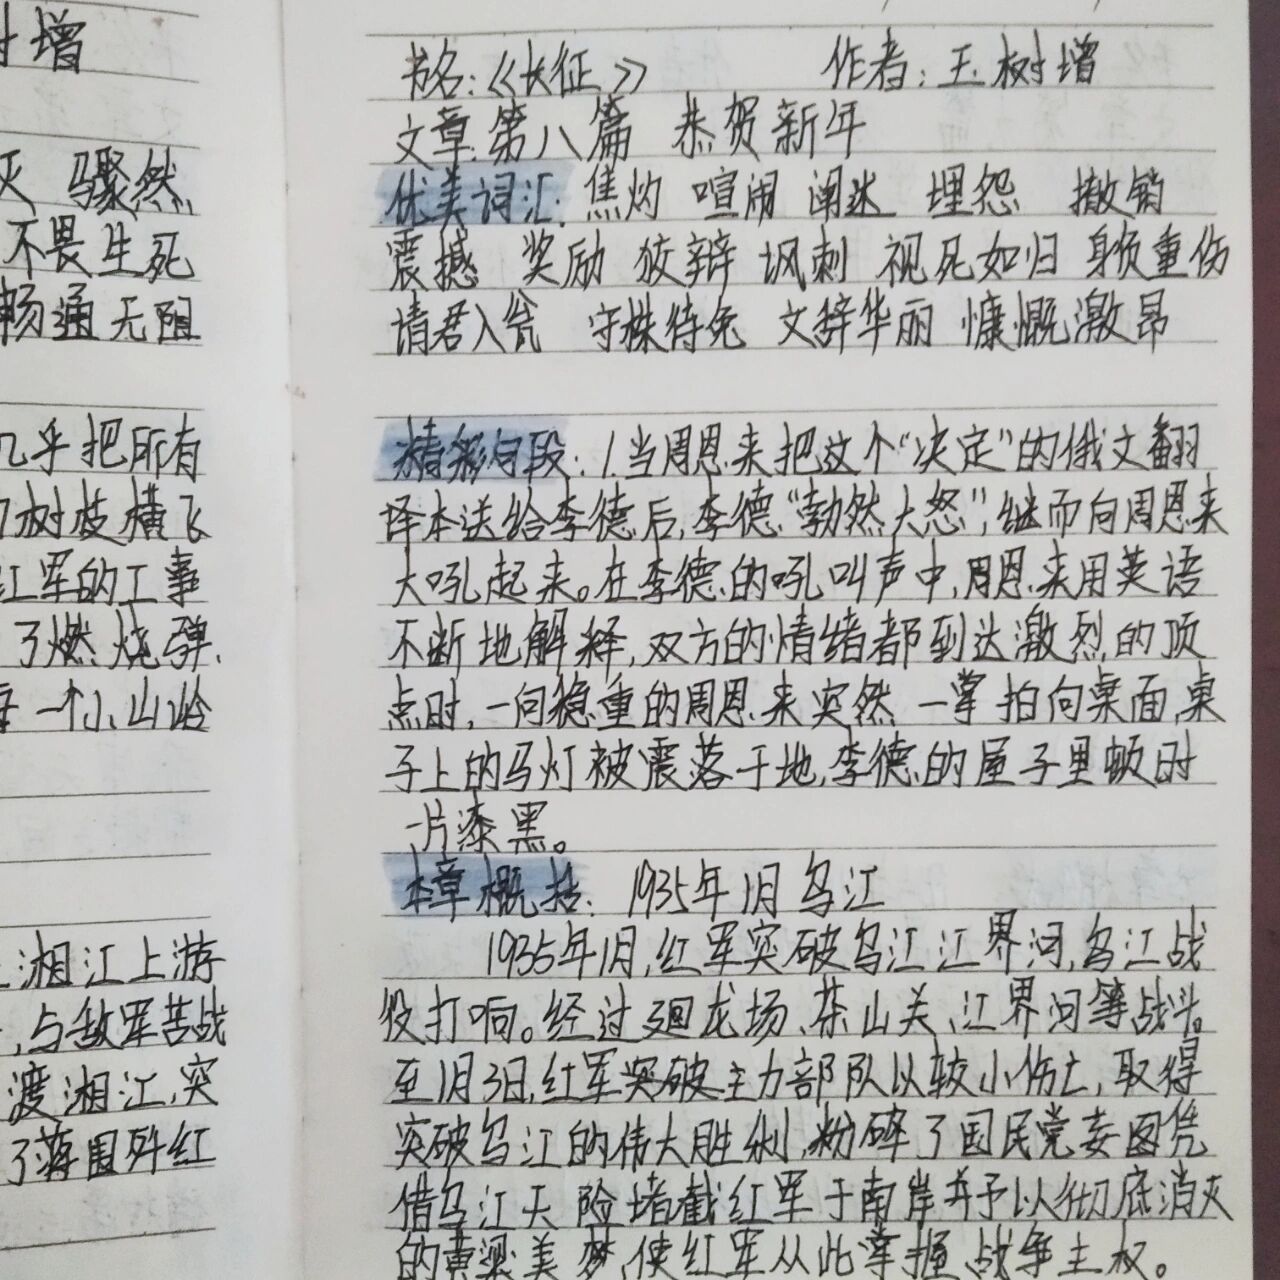 树增
灭 骤然
不畏生死
畅通无阻
几乎把所有
树枝横飞
红军的工事
了燃烧弹,
每一个小山岭
湘江上游
,与敌军苦战
渡湘江,突
了蒋围歼红
书名:《长征》 作者:王树增
文章:第八篇 恭贺新年
优美词汇: 焦灼 喧闹 阐述 埋怨 撤销
震撼 奖励 狡辩 讽刺 视死如归 身负重伤
请君入瓮 守株待兔 文辞华丽 慷慨激昂
精彩句段:1.当周恩来把这个“决定”的俄文翻
译本送给李德后,李德“勃然大怒”,继而向周恩来
大吼起来。在李德的吼叫声中,周恩来用英语
不断地解释,双方的情绪都到达激烈的顶
点时,一向稳重的周恩来突然一掌拍向桌面,桌
子上的马灯被震落于地,李德的屋子里顿时
一片漆黑。
本章概括: 1935年1月乌江
1935年1月,红军突破乌江江界河,乌江战
役打响。经过迴龙场、茶山关、江界河等战斗。
至1月3日,红军突破主力部队以较小伤亡,取得
突破乌江的伟大胜利,粉碎了国民党妄图凭
借乌江天险堵截红军于南岸并予以彻底消灭
的黄粱美梦,使红军从此掌握战争主权。